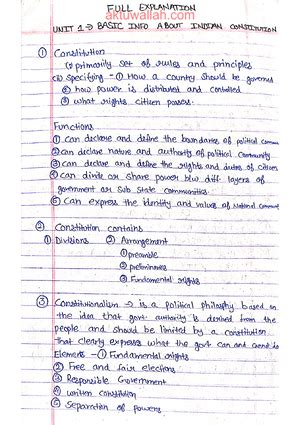 FULL EXPLANATION
aktuwallah.com
UNIT 1 → BASIC INFO ABOUT INDIAN CONSTITUTION
① Constitution
(i) primarily set of rules and principles
(ii) Specifying - ① How a country should be governed
② how power is distributed and controlled
③ what rights citizen posses.
Functions
① can declare and define the boundaries of political
② can declare nature and authority of political community
③ can declare and define the rights and duties of citizen
④ can divide or share power b/w diff layers of
government or Sub State communities.
⑤ Can express the identity and values of National
② Constitution contains
① Divisions ② Arrangement
① preamble
② preliminaries
③ Fundamental rights
③ Constitutionalism → is a political philosphy based on
the idea that govt authority is derived from the
people and should be limited by a constitution
that clearly expresses what the govt can and
Elements - ① Fundamental rights
② Free and fair elections
③ Responsible Government
④ written constitution
⑤ Separation of powers